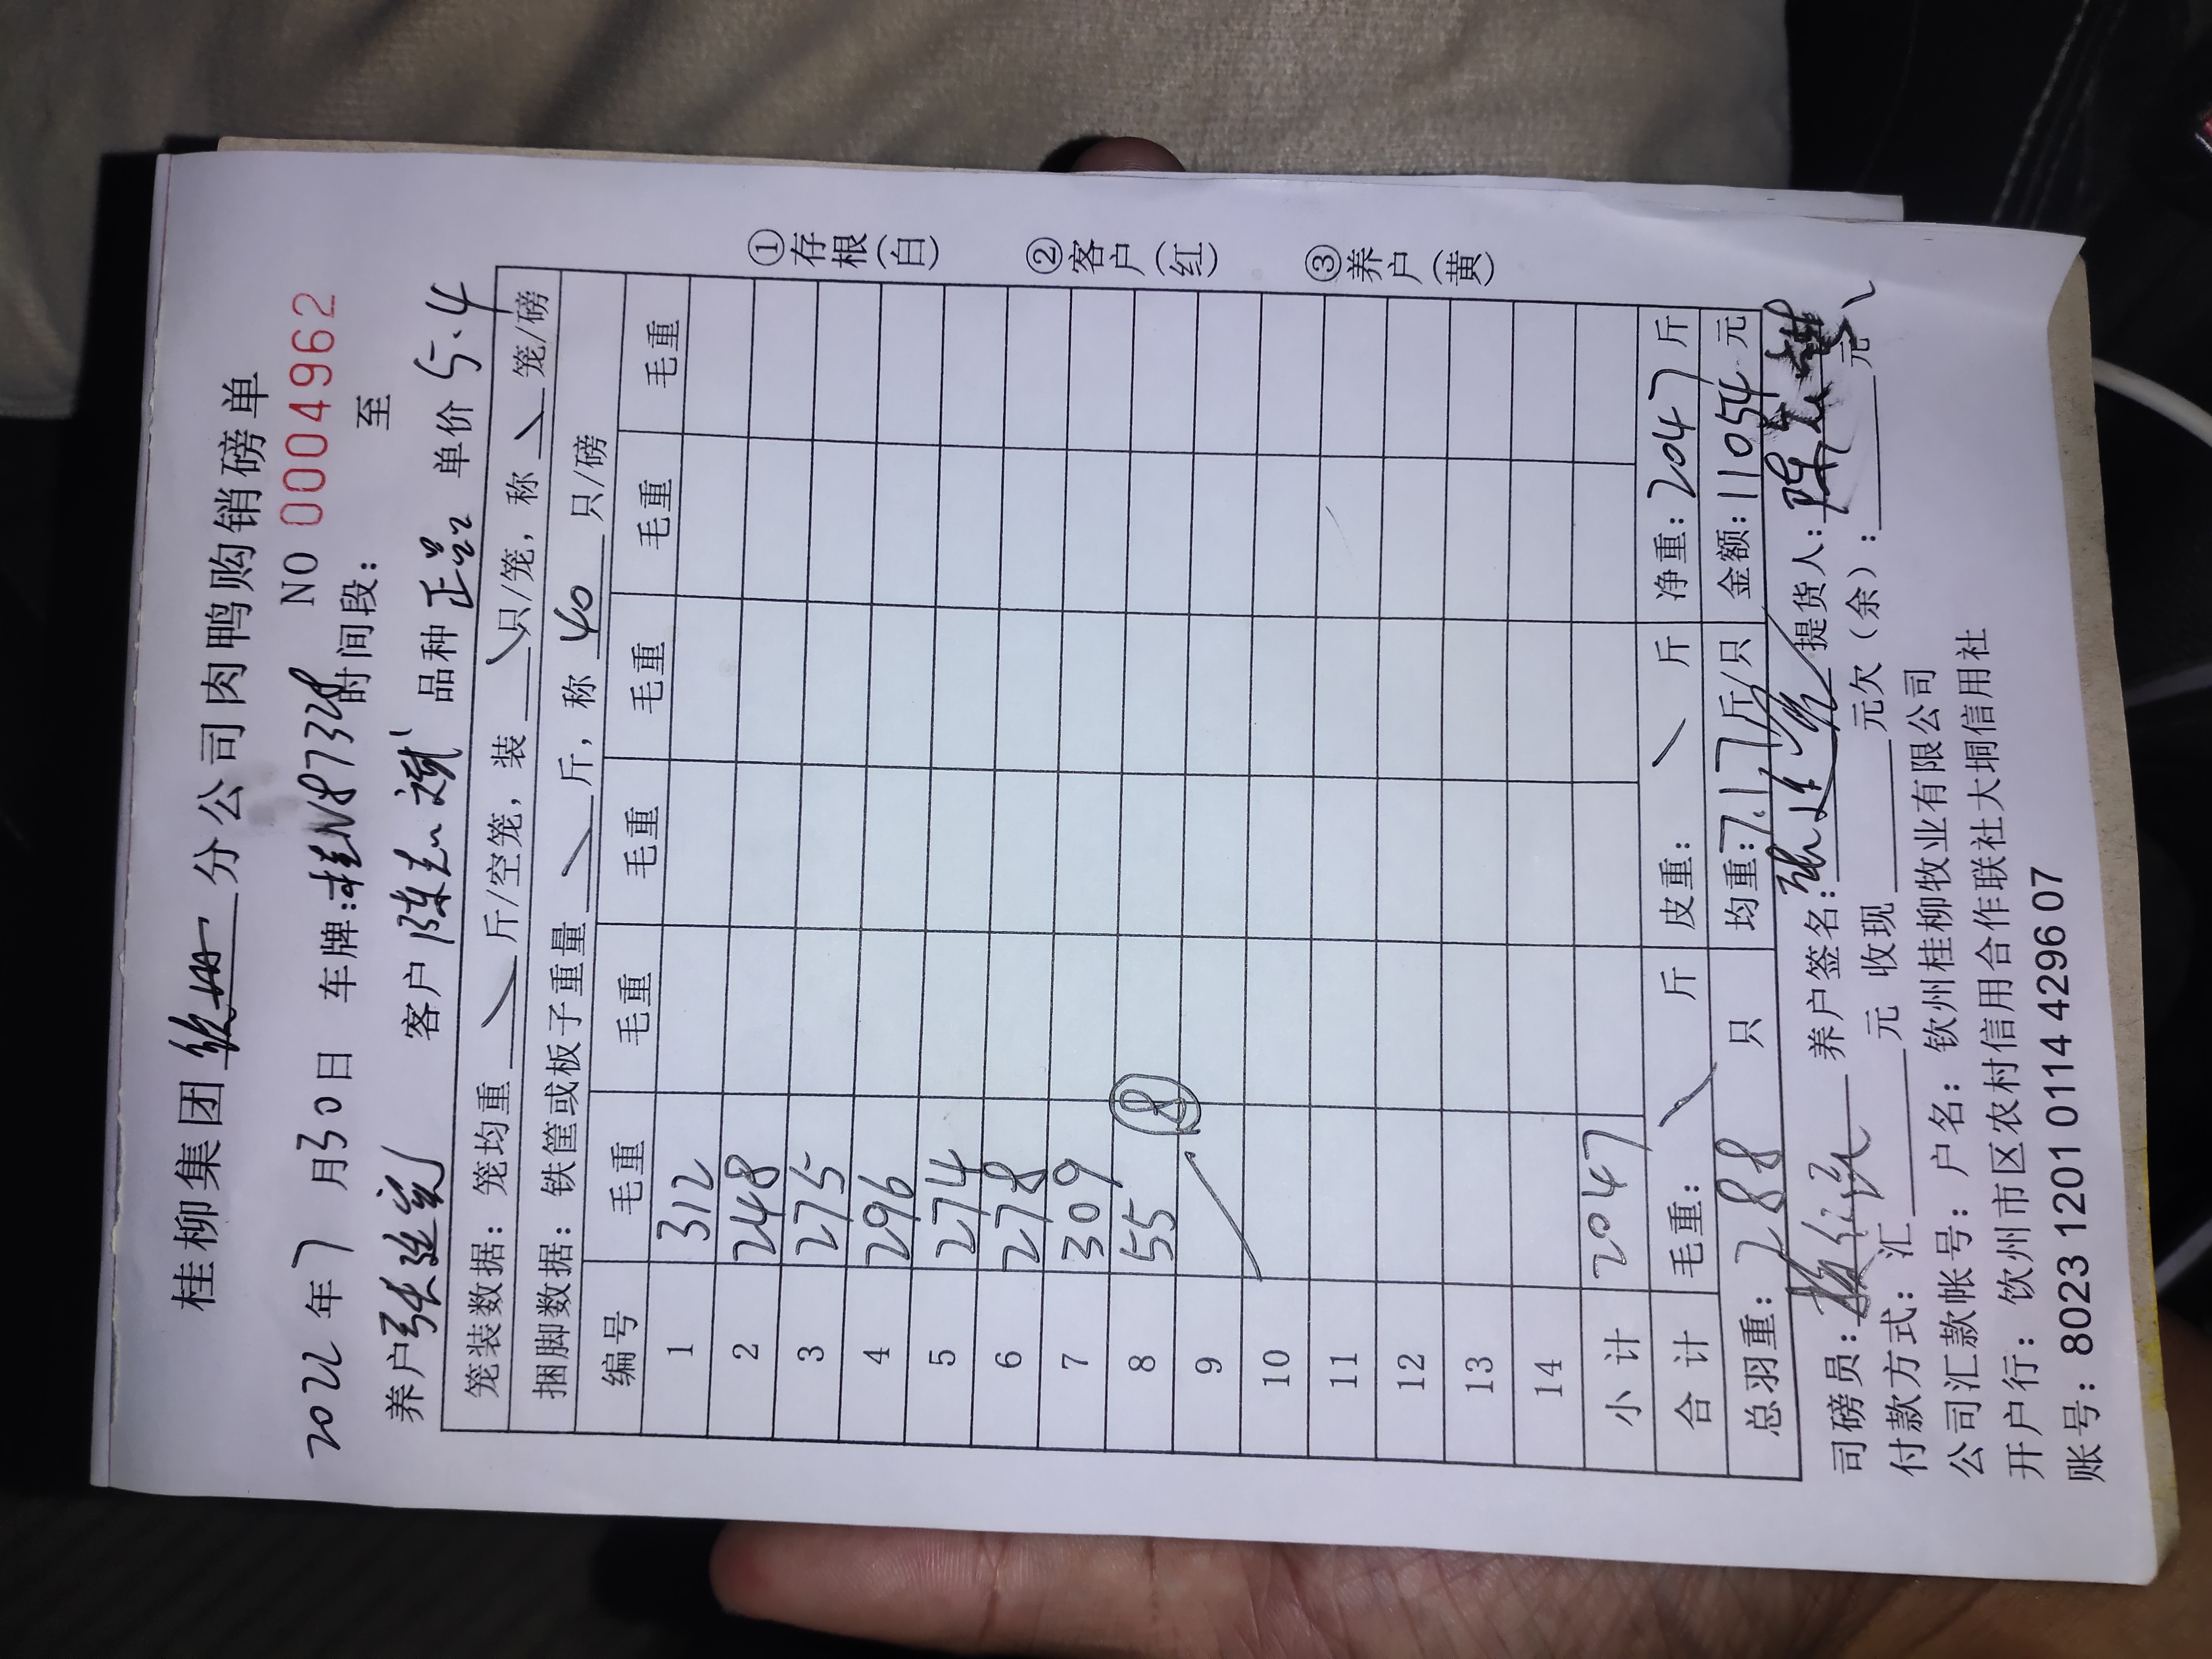 桂柳集团 分公司肉鸭购销磅单
2022年7月30日 车牌:桂N87328 NO 0004962
时间段: 至
养户 张延宽 客户 陈志斌 品种 正品 单价 5.4
笼装数据：笼均重 斤/空笼，装 只/笼，称 笼/磅
捆脚数据：铁筐或板子重量 斤，称 40 只/磅
编号 毛重 毛重 毛重 毛重 毛重 毛重
1 312
2 248
3 275
4 296
5 274
6 278
7 309
8 55 ⑧
9
10
11
12
13
14
小计 2047
合计 毛重： 斤 皮重： 斤 净重：2047斤
总羽重：288只 均重：7.17斤/只 金额：11054元
司磅员： 养户签名： 提货人：
付款方式：汇 元 收现 元欠（余）： 元
公司汇款帐号：户名：钦州桂柳牧业有限公司
开户行：钦州市区农村信用合作联社大垌信用社
账号：8023 1201 0114 4296 07
①存根(白)
②客户(红)
③养户(黄)